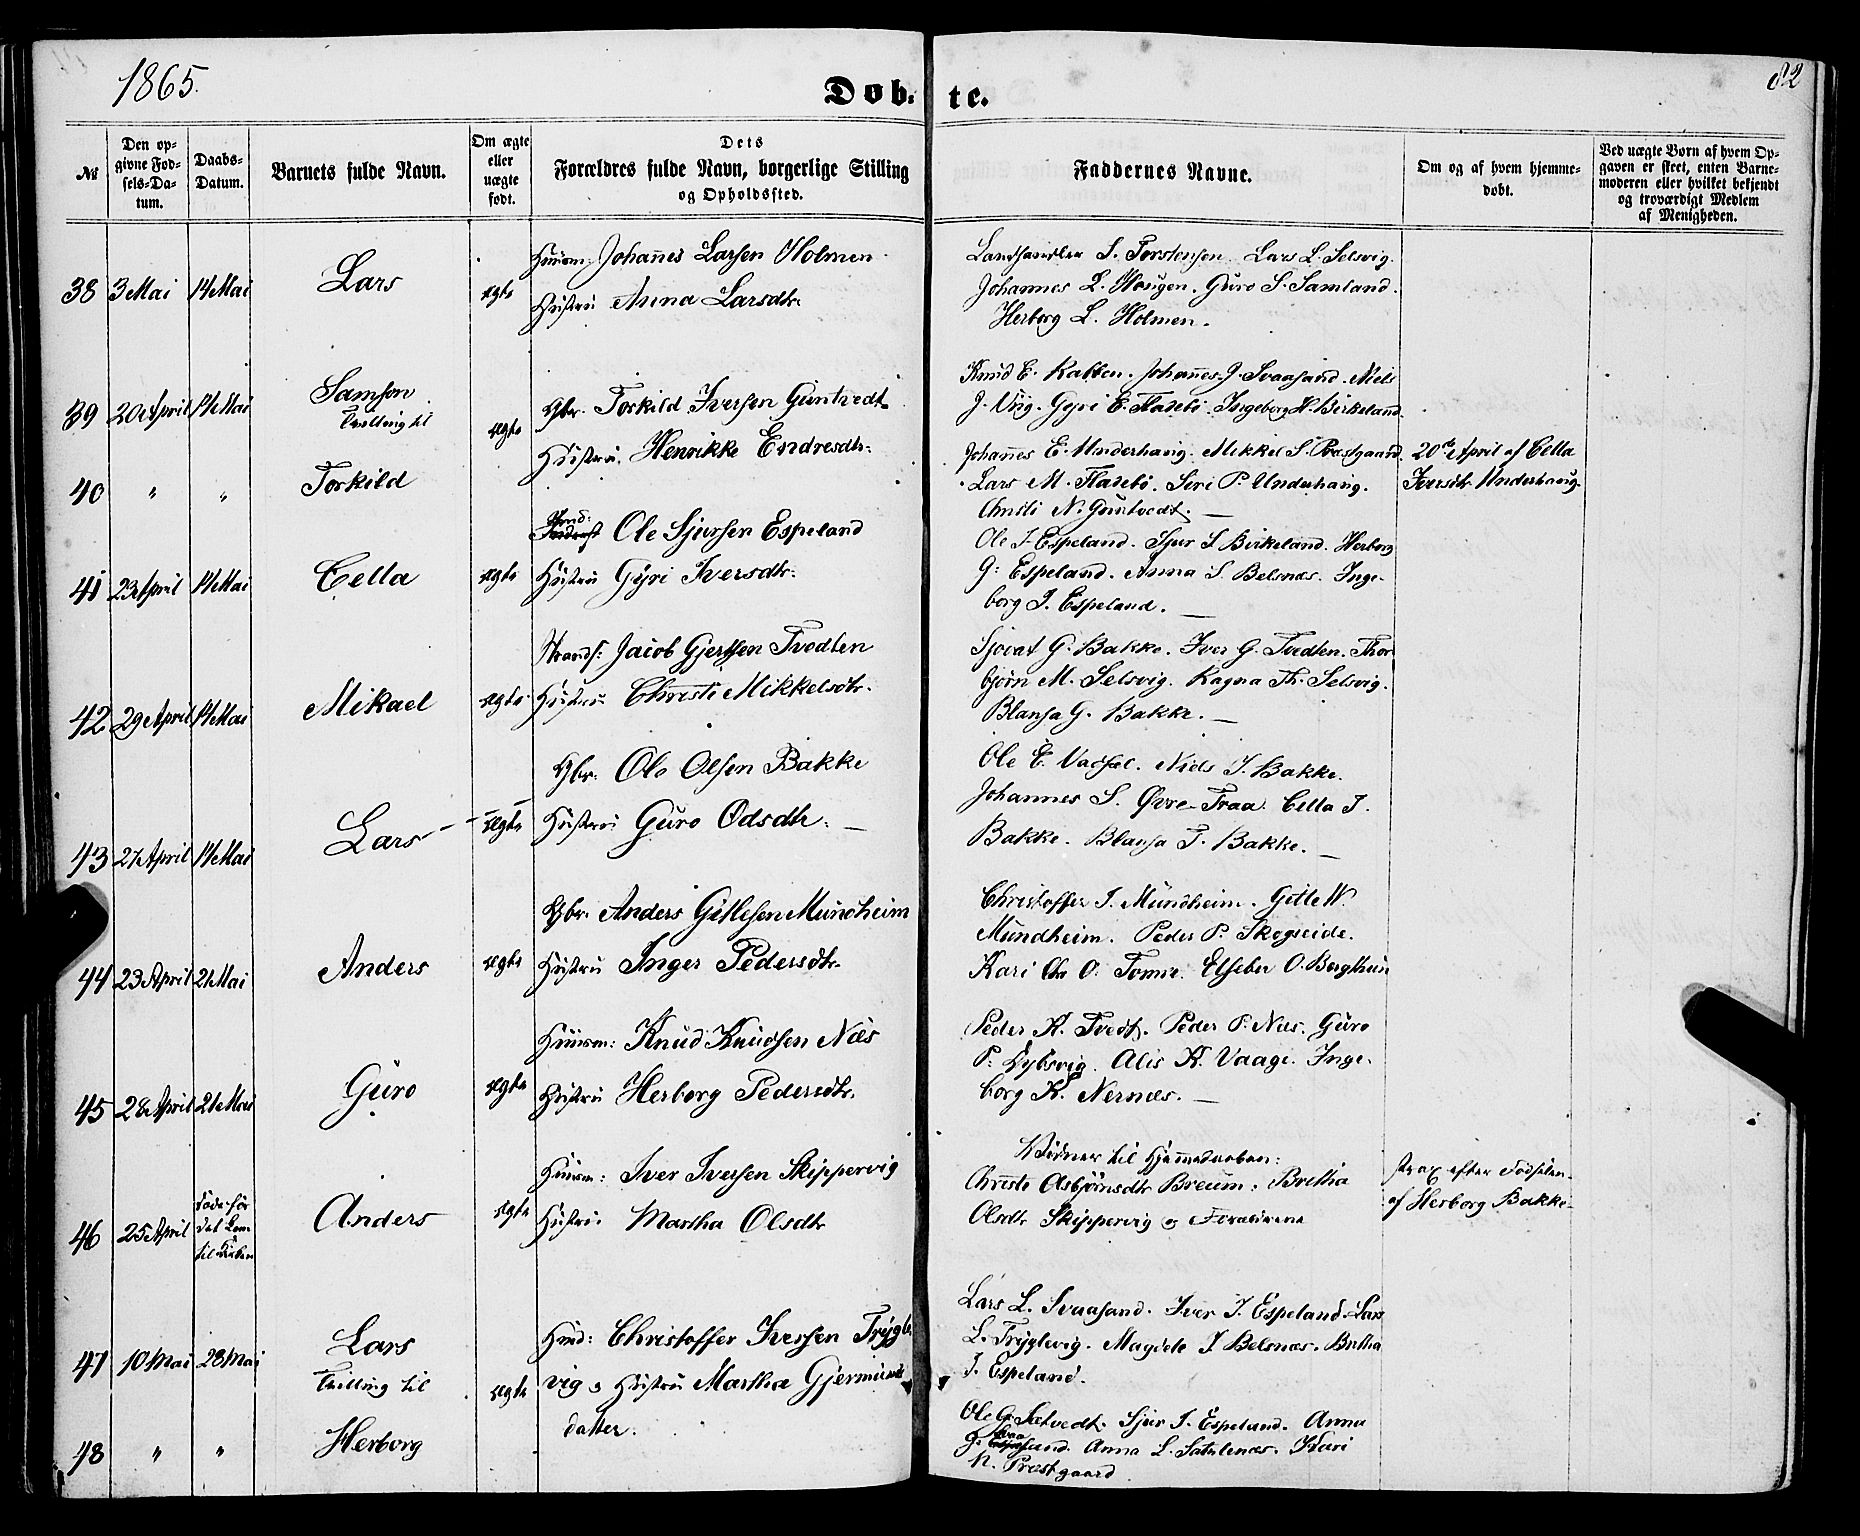 1865.
82
Døb- te.
№
Den op-
givne Fød-
sels-Da-
tum.
Daabs-
Datum.
Barnets fulde Navn.
Om ægte
eller
uægte
født.
Dets
Forældres fulde Navn, borgerlige Stilling
og Opholdssted.
Faddernes Navne.
Om og af hvem hjemme-
døbt.
Ved uægte Børn af hvem Op-
gaven er skeet, enten Barne-
moderen eller hvilket bekjendt
og troværdigt Medlem
af Menigheden.
38 3 Mai 14 Mai Lars ægte
Huusm: Johannes Larsen Holmen
Hustru Anna Larsdtr.
Landhandler S. Torstensen Lars L. Selsvig.
Johannes L. Hougen. Guro S. Samland.
Herborg L. Holmen.
39 20 April 14 Mai Samson
Tvilling til
ægte
Gbr. Torkild Iversen Guntvedt
Hustru. Henrikke Endresdtr.
Knud E. Johannes J. Svaasand. Niels
J. Viig. Gyri E. Flatebø. Ingeborg H. Birkeland.
40 " " Torkild
Johannes E. Underhaug. Mikkel S. Præstgaard.
Lars M. Flatebø. Siri P. Underhaug.
Christi N. Guntvedt. —
20de April af Cella
Iversdtr. Underhaug.
41 23 April 14 Mai Cella ægte
Ole Sjursen Espeland
Hustru Gyri Iversdtr.
Ole I Espeland. Sjur S Birkeland. Herborg
G: Espeland. Anna S. Belsnæs. Inge-
borg I. Espeland. —
42 29 April 14 Mai Mikael ægte
Strands: Jacob Gjertsen Tvedten
Hustru Christi Mikkelsdtr.
Sjovat G. Bakke. Iver G. Tvedten. Thor
bjørn M. Selsvig. Ragna Th. Selsvig.
Blansa G. Bakke. —
43 27 April 14 Mai Lars ægte
Gbr. Ole Olsen Bakke
Hustru Guro Odsdtr. —
Ole E. Vassel. Niels J. Bakke.
Johannes S. Øvre-Traa. Cella J.
Bakke. Blansa J. Bakke. —
44 23 April 21 Mai Anders ægte
Gbr. Anders Gitlesen Mundheim
Hustru Inger Pedersdtr.
Christoffer J. Mundheim. Gitle W.
Mundheim. Peder P. Skogseide.
Kari O. Tomre. Elseber O. Bergthun
45 28 April 21 Mai Guro ægte
Huusm: Knud Knudsen Næs
Hustru Herborg Pedersdtr.
Peder K. Tvedt. Peder P. Næs. Guro
P. Dybsvig. Alis K. Vaage. Inge-
borg K. Nernæs. —
46 25 April
Døde før
det kom
til Kirken
Anders ægte
Huusm: Iver Iversen Skippervig
Hustru. Martha Olsdtr
Vidner til Hjemmedaaben:
Christi Asbjørnsdtr Breum. Britha
Olsdtr Skippervig og Forældrene
strax efter Fødselen
af Herborg Bakke
47 10 Mai 28 Mai Lars
Tvilling til
ægte
Hmd: Christoffer Iversen Trygle
vig og Hustru Martha Gjermunds
datter.
Lars L. Svaasand. Iver J. Espeland. Lars
L. Tryglevig. Magdele J Belsnæs. Britha
J. Espeland.
48 " " Herborg
Ole G. Sætvedt. Sjur I. Espeland. Anna
G. Svaasand. Anna L. Kari
N. Præstgaard